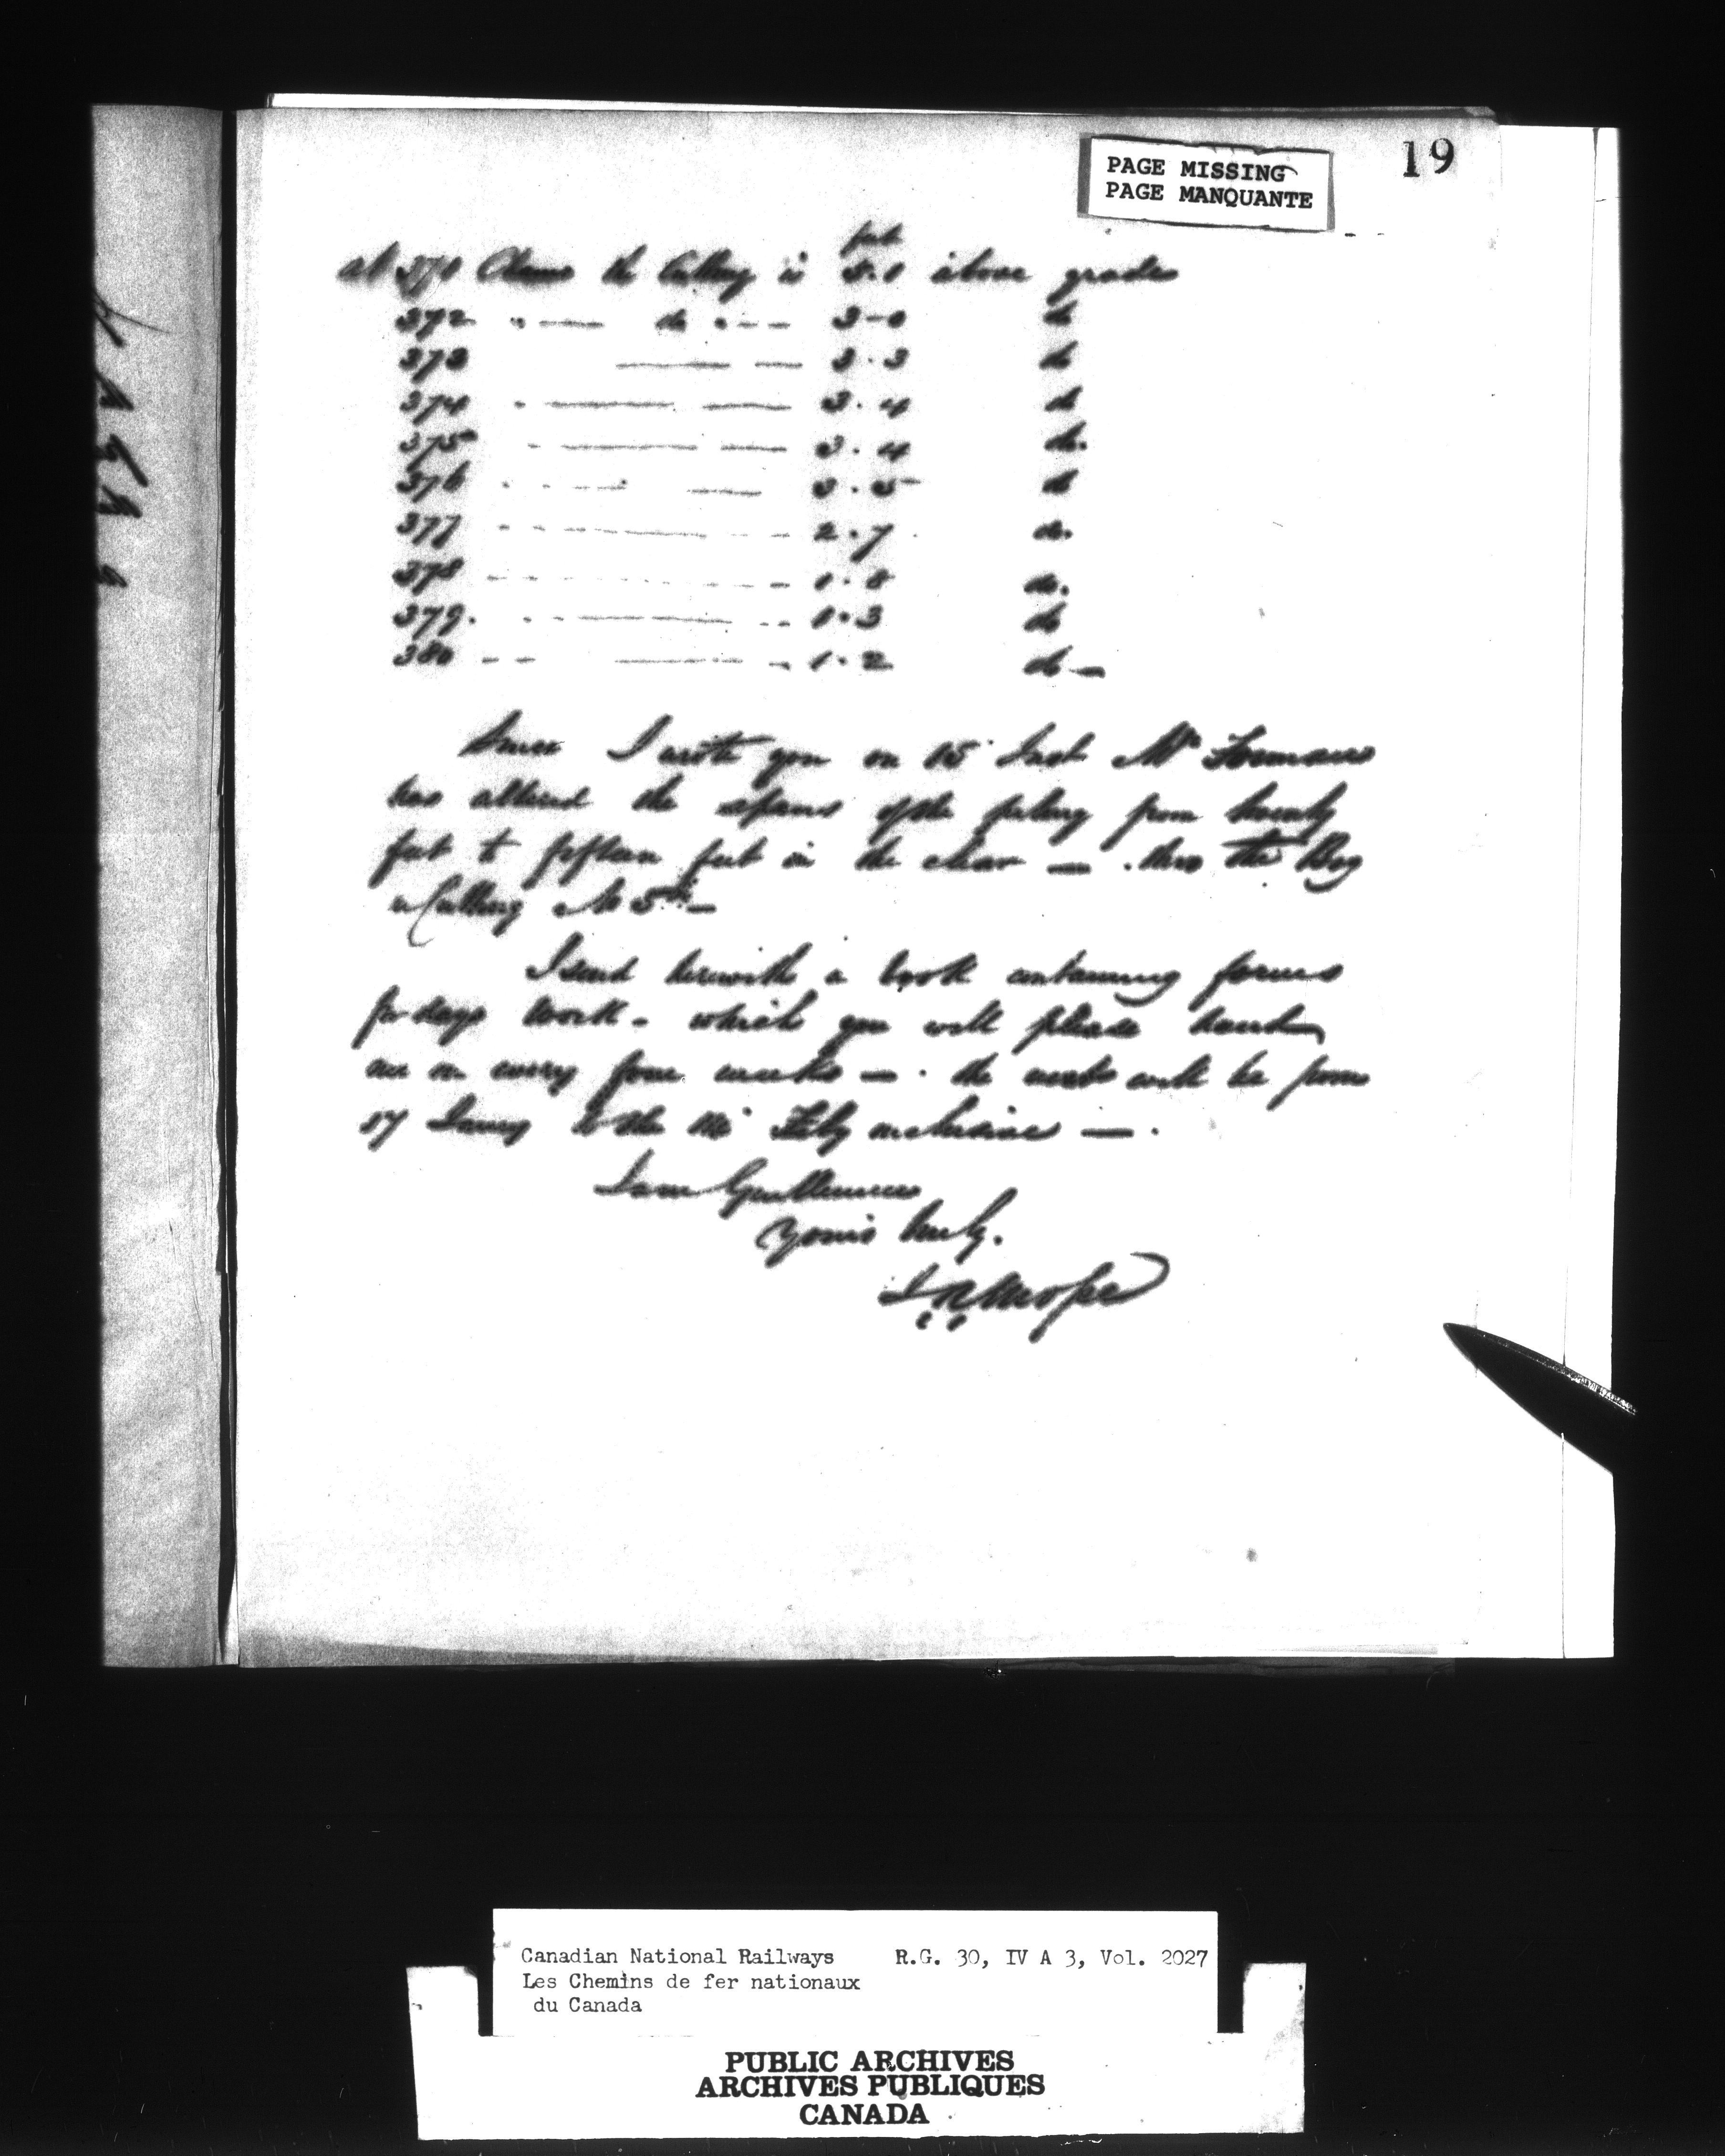 PAGE MISSING
PAGE MANQUANTE
19
feet
at 371 Chains the Cutting is 3.1 above grade
372 do 3-0 do
373 3.3 do
374 3.4 do
375 3.4 do.
376 3.5 do
377 2.7 do.
378 1.8 do.
379. 1.3 do
380 1.2 do
Since I wrote you on 15 Inst Mr Forman
has altered the spans of the piling from twenty
feet to fifteen feet in the clear — thro the Bog
Cutting No 5
I send herewith a book containing forms
for days work - which you will please hand
me on every four weeks — the next will be from
17 Jany to the Feby inclusive —
I am Gentlemen
Yours truly.
Canadian National Railways R.G. 30, IV A 3, Vol. 2027
Les Chemins de fer nationaux
du Canada
PUBLIC ARCHIVES
ARCHIVES PUBLIQUES
CANADA